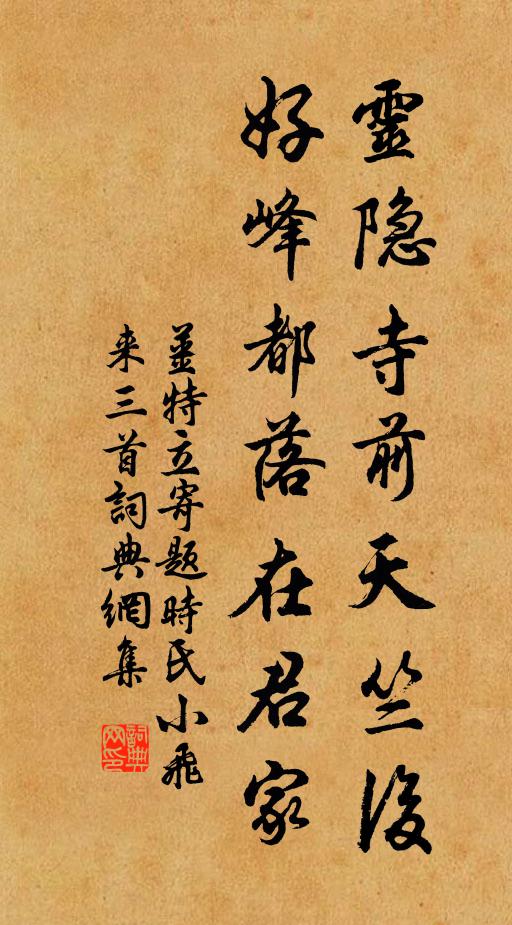 靈隐寺前天竺後
好峰都落在君家
姜特立寄题時氏小飛
来三首詞典網集
詞典网印